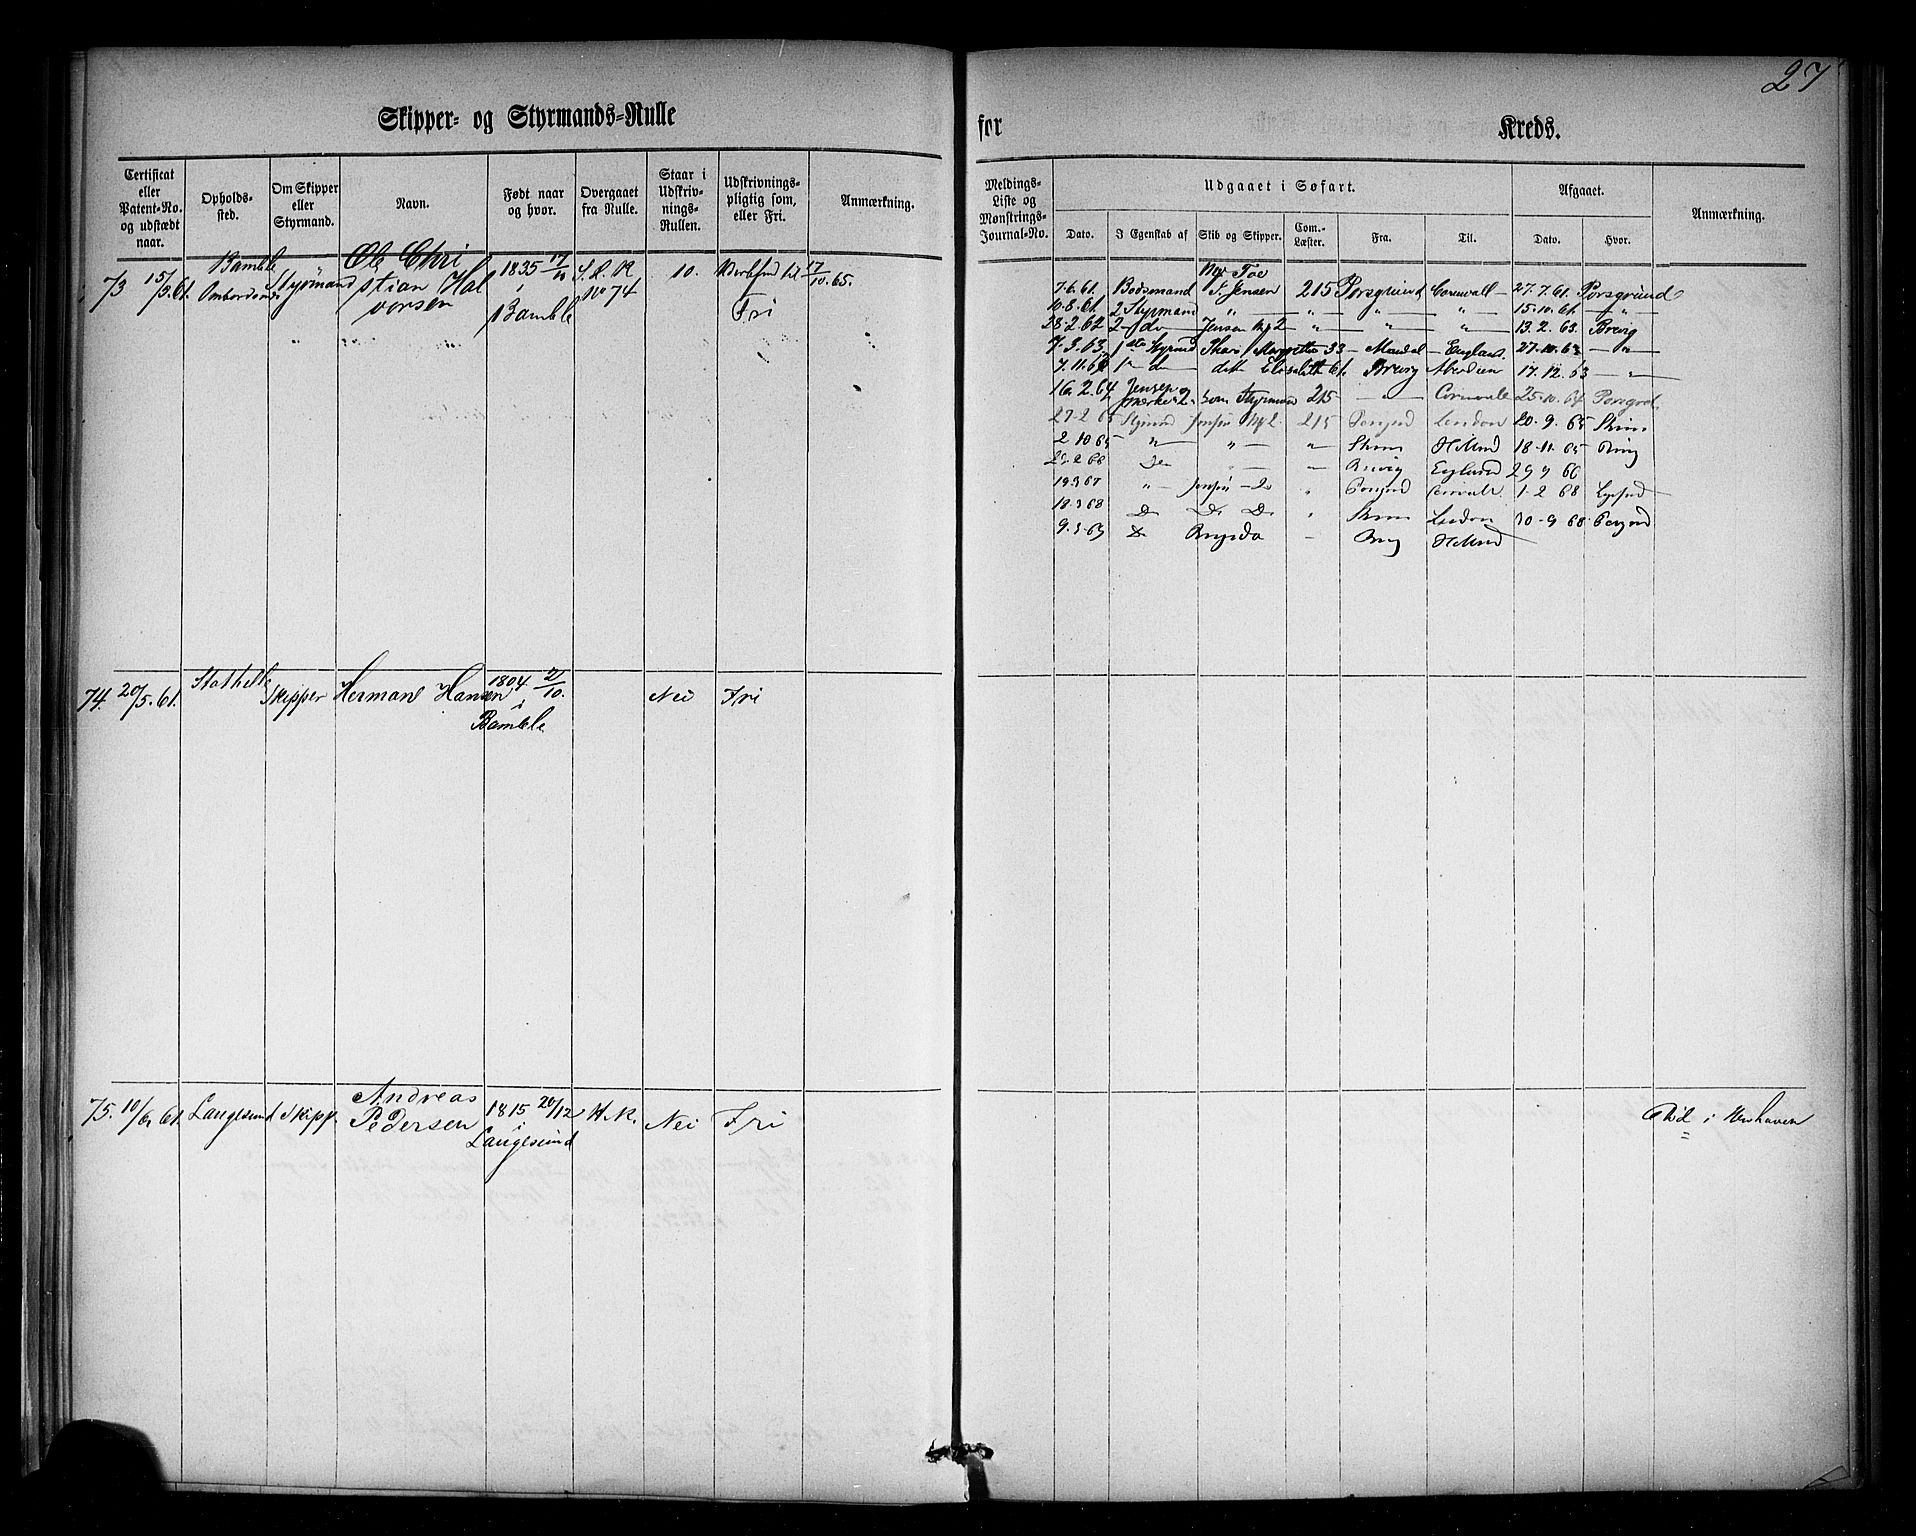 27
Skipper- og Styrmands-Rulle
for
Kreds.
Certificat eller Patent-No. og udstædt naar.
Opholds-sted.
Om Skipper eller Styrmand.
Navn.
Født naar og hvor.
Overgaaet fra Rulle.
Staar i Udskriv-nings-Rullen.
Udskrivnings-pligtig som, eller Fri.
Anmærkning.
Meldings-Liste og Mønstrings-Journal-No.
Udgaaet i Søfart.
Dato.
I Egenskab af
Skib og Skipper.
Com.-Læster.
Fra.
Til.
Afgaaet.
Dato.
Hvor.
Anmærkning.
73 15/5.61. Bamble Ombordsnæs Styrmand Ole Chri
stian Hal
vorsen
1835 17/11
i
Bamble
S. R. R
No 74
10.
til 17/10.65.
Fri
7.6.61. Bodsmand F. Jensen 215 Porsgrund Cornvall 27.7.61. Porsgrund
10.8.61. 2 Styrmand " " " " 15.10.61. "
28.2.62 2 do Jensen 2 " " " 13.2.63. Brevig
7.3.63. 1ste Styrmd Margrethe 33 Mandal England 27.10.63 "
7.11.63 1 do ditto Elisabeth 61. Brevig Aberdeen 17.12.63 "
16.2.64 Jensen 2 som Styrmand 215 " Cornvale 25.10.64 Porsgrd.
27.2.65 Styrmd Jensen 2 215 Porsgrd London 20.9.65 Skien
2.10.65 " " " Skien Holland 18.11.65 Brvig
2.66 Do " " Brevig England 29 9 66
19.3.67 " Jensen 2 " Porsgrd Cornvale 1.2 68
18.3.68 Do Do Do " Skien London 30.9 68 Porsgrd
9.3.69 Do Brvg Holland
74. 20/5.61. Stathelle Skipper Hermann Hansen 1804 2/10.
i
Bamble
Nei Fri
75. 10/6 61. Langesund Skipp. Andreas
Pedersen
1815 20/12
i
Langesund
H. R. Nei Fri
Død i Nershaven